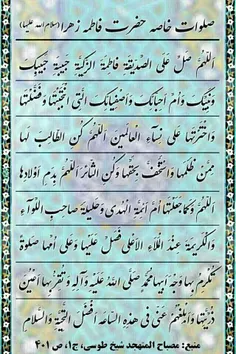 صلوات خاصه حضرت فاطمه زهرا (سلام الله علیها)
اَللّهُمَّ صَلِّ عَلَی الصِّدّیقَةِ فاطِمَةَ الزَّکِیَّةِ حَبیبَةِ حَبیبِکَ
وَ نَبِیِّکَ وَ اُمِّ اَحِبّائِکَ وَ اَصْفِیائِکَ الَّتِی انْتَجَبْتَها وَ فَضَّلْتَها
وَ اخْتَرْتَها عَلی نِساءِ الْعالَمینَ اَللّهُمَّ کُنِ الطّالِبَ لَها
مِمَّنْ ظَلَمَها وَ اسْتَخَفَّ بِحَقِّها وَ کُنِ الثّائِرَ اَللّهُمَّ بِدَمِ اَوْلادِها
اَللّهُمَّ وَ کَما جَعَلْتَها اُمَّ اَئِمَّةِ الْهُدی وَ حَلیلَةَ صاحِبِ اللِّوآءِ
وَ الْکَریمَةَ عِنْدَ الْمَلَاءِ الْاَعْلی فَصَلِّ عَلَیْها وَ عَلی اُمِّها صَلوةً
تُکْرِمُ بِها وَجْهَ اَبیها مُحَمَّدٍ صَلَّی اللّهُ عَلَیْهِ وَ آلِهِ وَ تُقِرُّ بِها اَعْیُنَ
ذُرِّیَّتِها وَ اَبْلِغْهُمْ عَنّی فی هذِهِ السّاعَةِ اَفْضَلَ التَّحِیَّةِ وَ السَّلامِ
منبع: مصباح المتهجد شیخ طوسی، ج۱، ص ۴۰۱